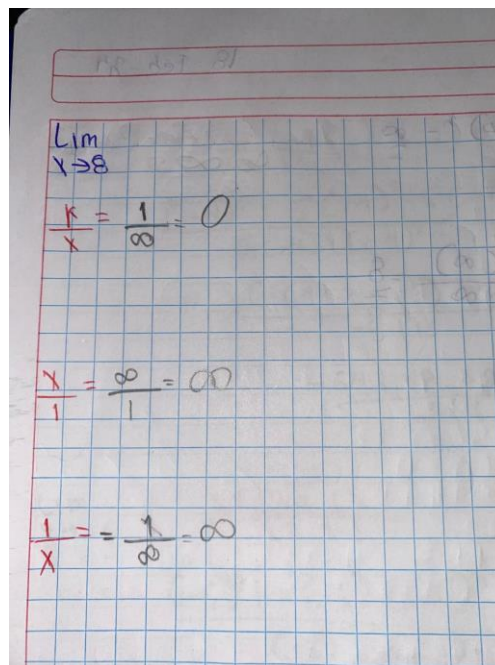 Lim
x→8
K/x = 1/∞ = 0
x/1 = ∞/1 = ∞
1/x = = 1/∞ = ∞